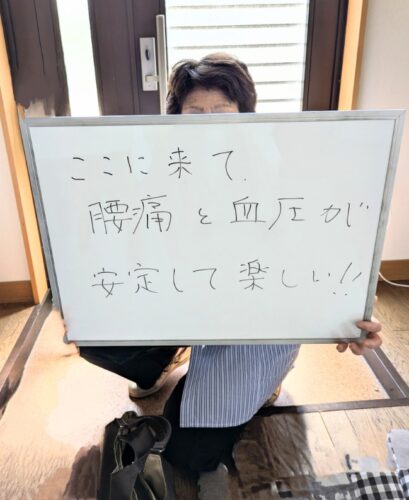 ここに来て、
腰痛と血圧が
安定して楽しい!!